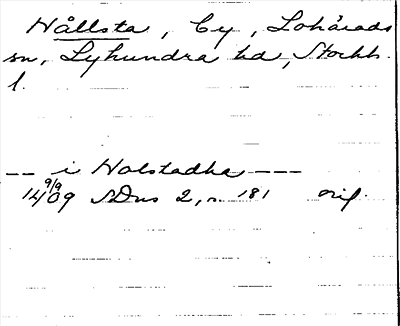 Hållsta, by, Lohärads
sn, Lyhundra hd, Stockh.
l.
-- i Halstadha ---
9/9
1409 SDns 2, n. 181 orig.